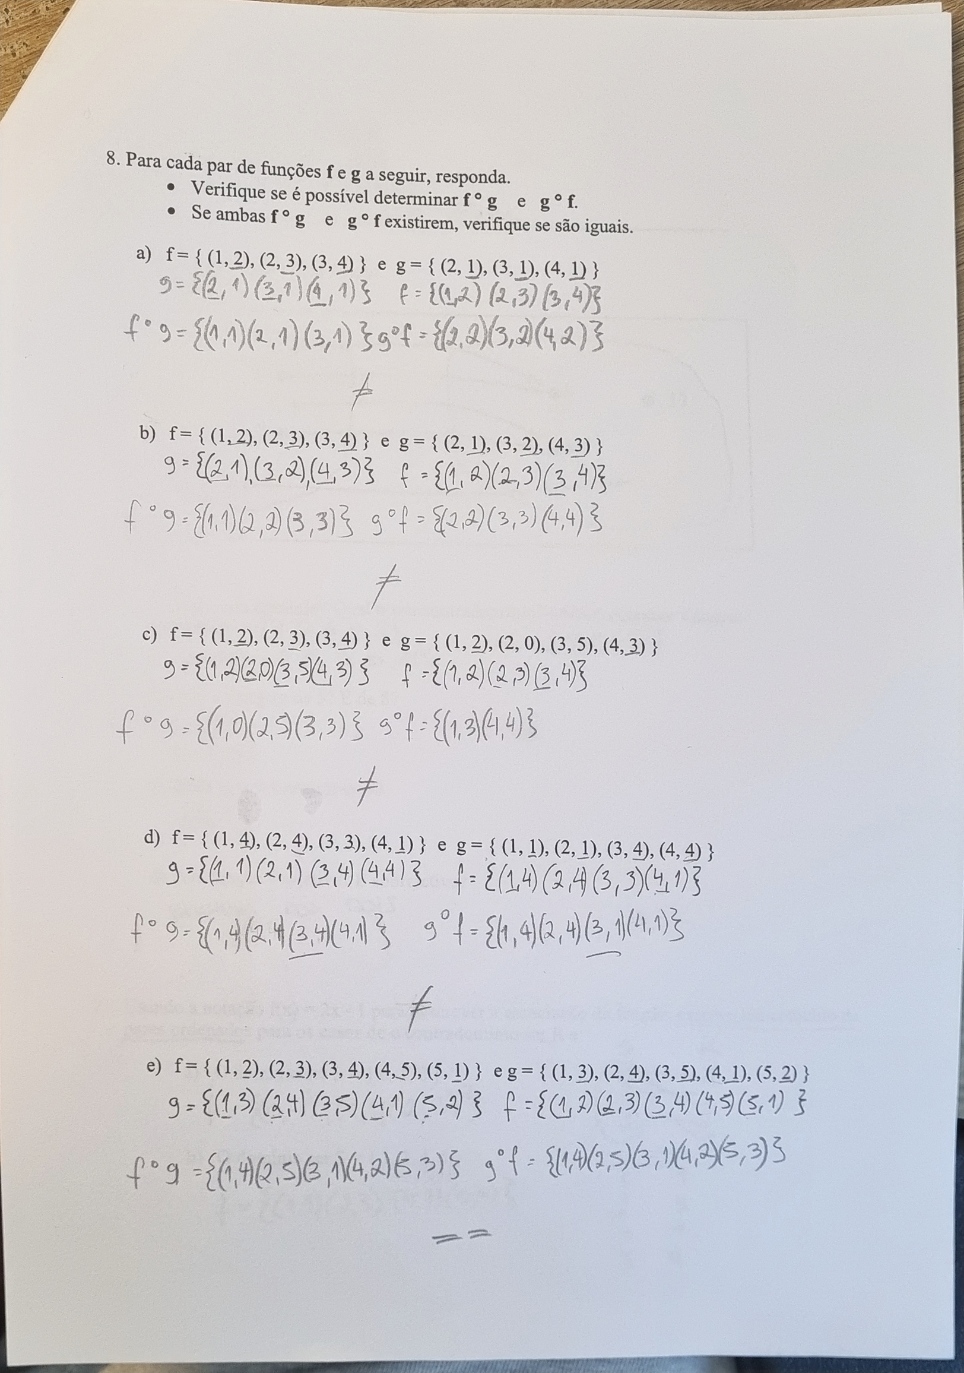 8. Para cada par de funções f e g a seguir, responda.
• Verifique se é possível determinar f ° g e g ° f.
• Se ambas f ° g e g ° f existirem, verifique se são iguais.
a) f = { (1, 2), (2, 3), (3, 4) } e g = { (2, 1), (3, 1), (4, 1) }
g = {(2, 1) (3, 1) (4, 1)} f = {(1,2) (2,3) (3,4)}
f ° g = {(1,1)(2,1)(3,1)} g°f = {(2,2)(3,2)(4,2)}
≠
b) f = { (1, 2), (2, 3), (3, 4) } e g = { (2, 1), (3, 2), (4, 3) }
g = {(2,1),(3,2),(4,3)} f = {(1,2)(2,3)(3,4)}
f ° g = {(1,1)(2,2)(3,3)} g°f = {(2,2)(3,3)(4,4)}
≠
c) f = { (1, 2), (2, 3), (3, 4) } e g = { (1, 2), (2, 0), (3, 5), (4, 3) }
g = {(1,2)(2,0)(3,5)(4,3)} f = {(1,2)(2,3)(3,4)}
f ° g = {(1,0)(2,5)(3,3)} g°f = {(1,3)(4,4)}
≠
d) f = { (1, 4), (2, 4), (3, 3), (4, 1) } e g = { (1, 1), (2, 1), (3, 4), (4, 4) }
g = {(1,1)(2,1)(3,4)(4,4)} f = {(1,4)(2,4)(3,3)(4,1)}
f ° g = {(1,4)(2,4)(3,4)(4,1)} g°f = {(1,4)(2,4)(3,1)(4,1)}
≠
e) f = { (1, 2), (2, 3), (3, 4), (4, 5), (5, 1) } e g = { (1, 3), (2, 4), (3, 5), (4, 1), (5, 2) }
g = {(1,3)(2,4)(3,5)(4,1)(5,2)} f = {(1,2)(2,3)(3,4)(4,5)(5,1)}
f ° g = {(1,4)(2,5)(3,1)(4,2)(5,3)} g°f = {(1,4)(2,5)(3,1)(4,2)(5,3)}
==